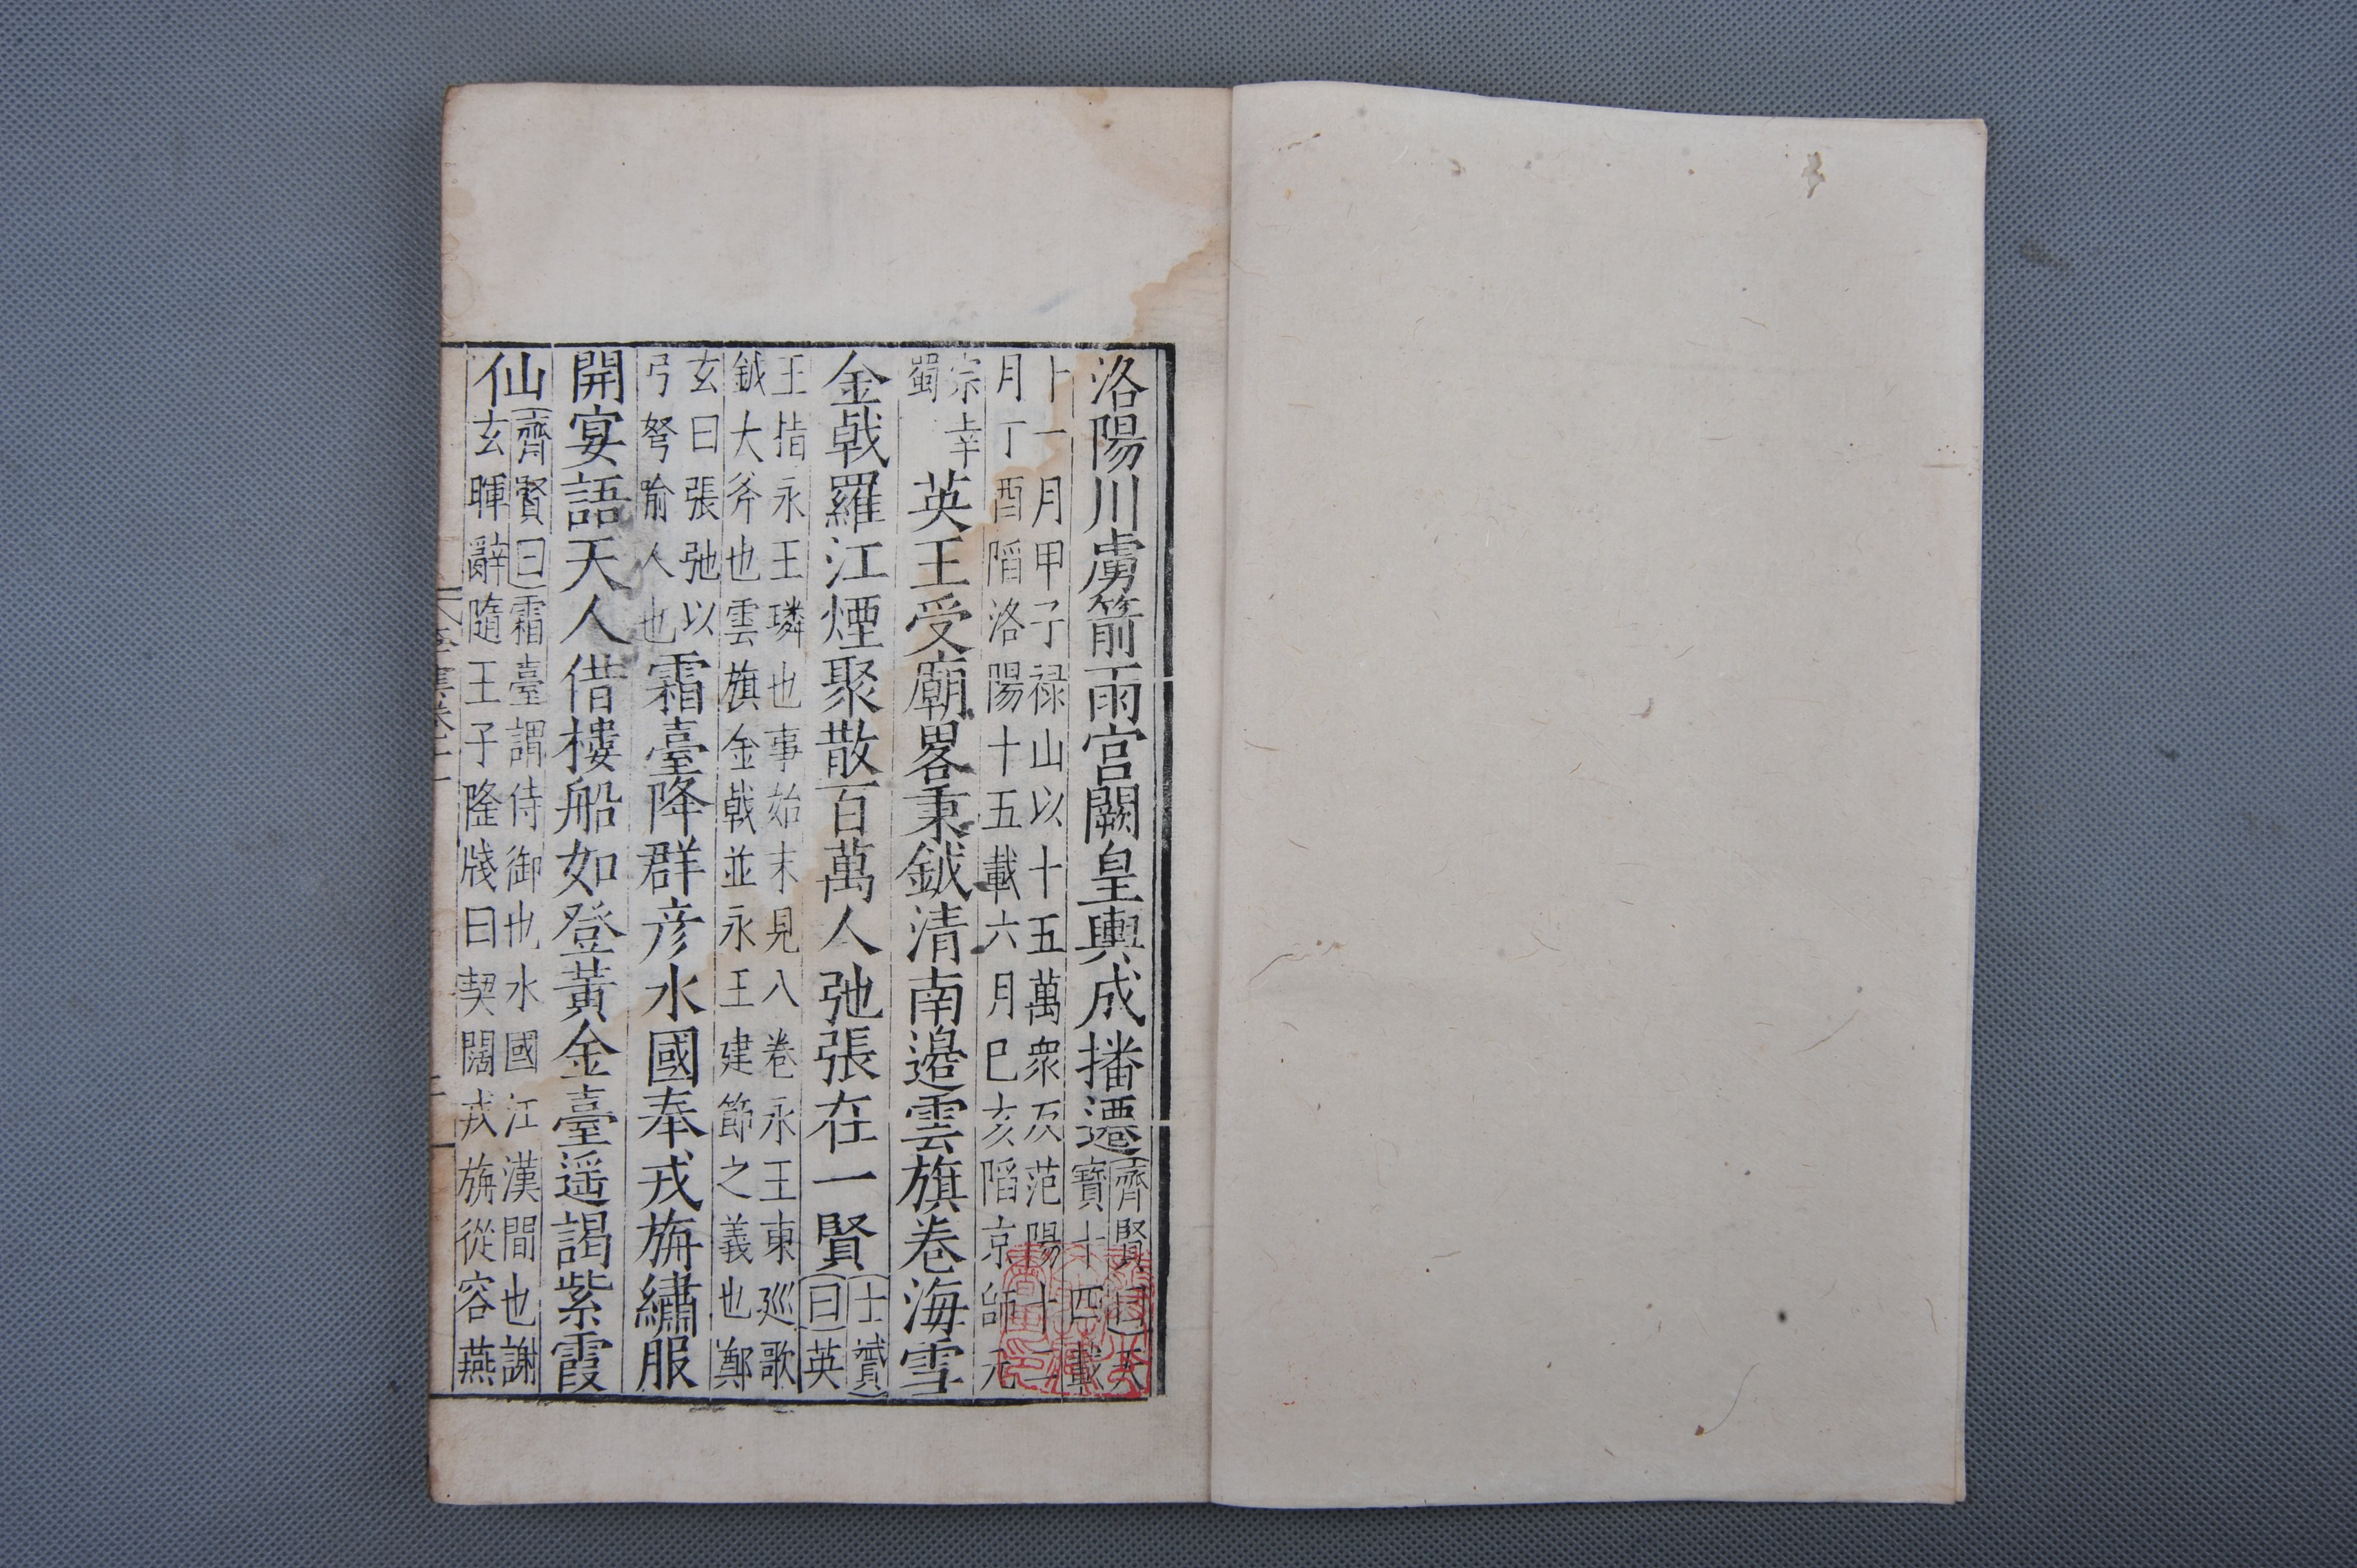 洛陽川虜箭雨宮闕皇輿成播遷齊賢曰天
寶十四載
十一月甲子祿山以十五萬衆反范陽十二
月丁酉䧟洛陽十五載六月巳亥䧟京師元
宗幸
蜀
英王受廟畧秉鉞清南邉雲旗卷海雪
金戟羅江煙聚散百萬人弛張在一賢士贇
曰英
王指永王璘也事始末見八卷永王東廵歌
鉞大斧也雲旗金戟並永王建節之義也鄭
玄曰張弛以
弓弩喻人也
霜臺降群彦水國奉戎旃繡服
開宴語天人借樓船如登黃金臺遥謁紫霞
仙齊賢曰霜臺謂侍御也水國江漢間也謝
玄暉辭隨王子隆牋曰契闊戎旃從容燕